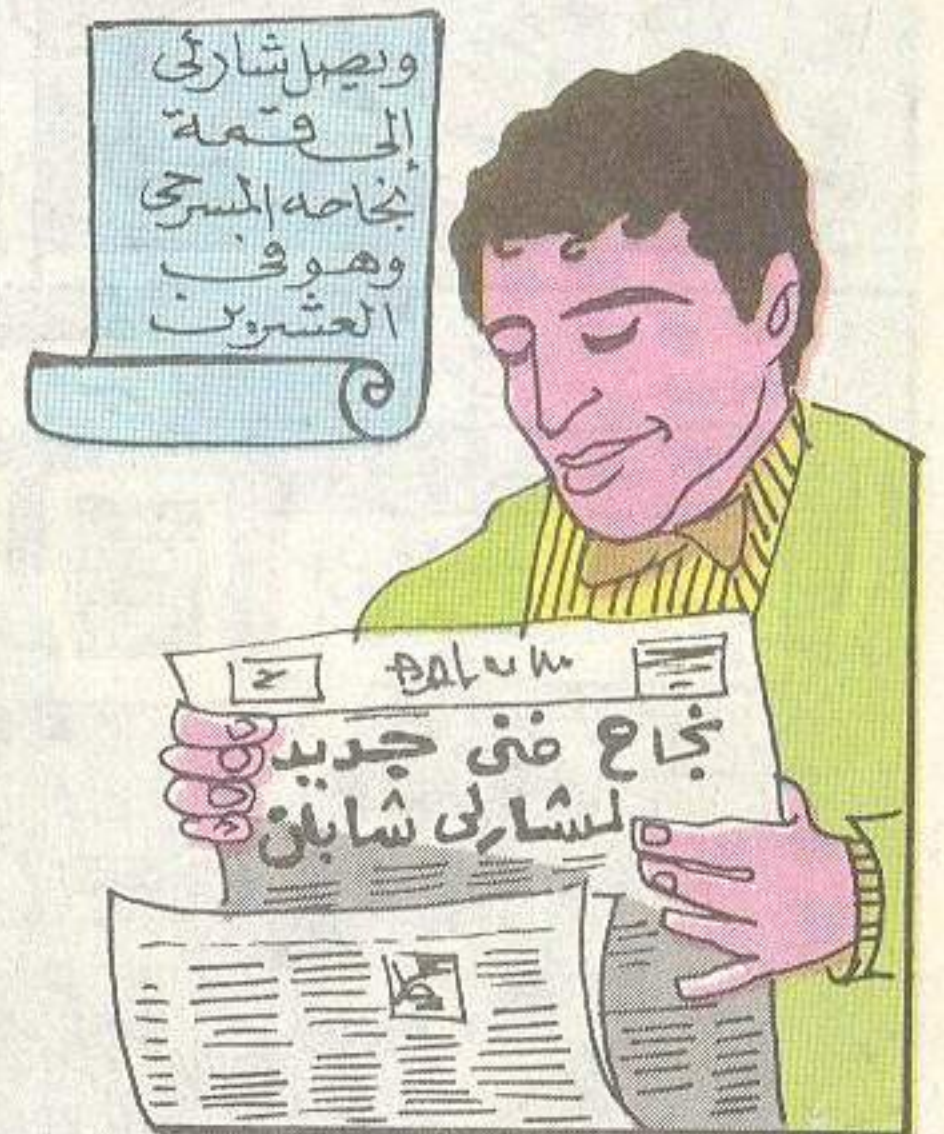 ويصل شارلي
إلى قمة
نجاحه المسرحى
وهو في
العشرين
نجاح فنى جديد
لشارلى شابلن